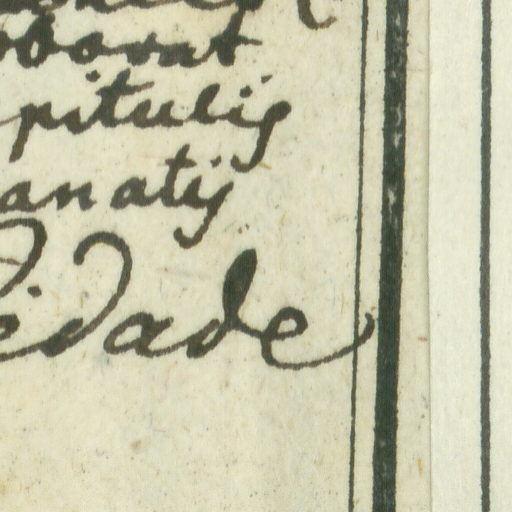 oborat
pitulis
anatij
iedade